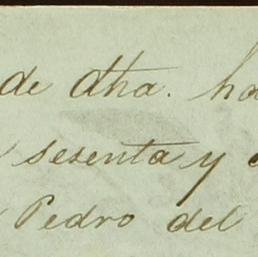 de dha. ha
sesenta y
Pedro del